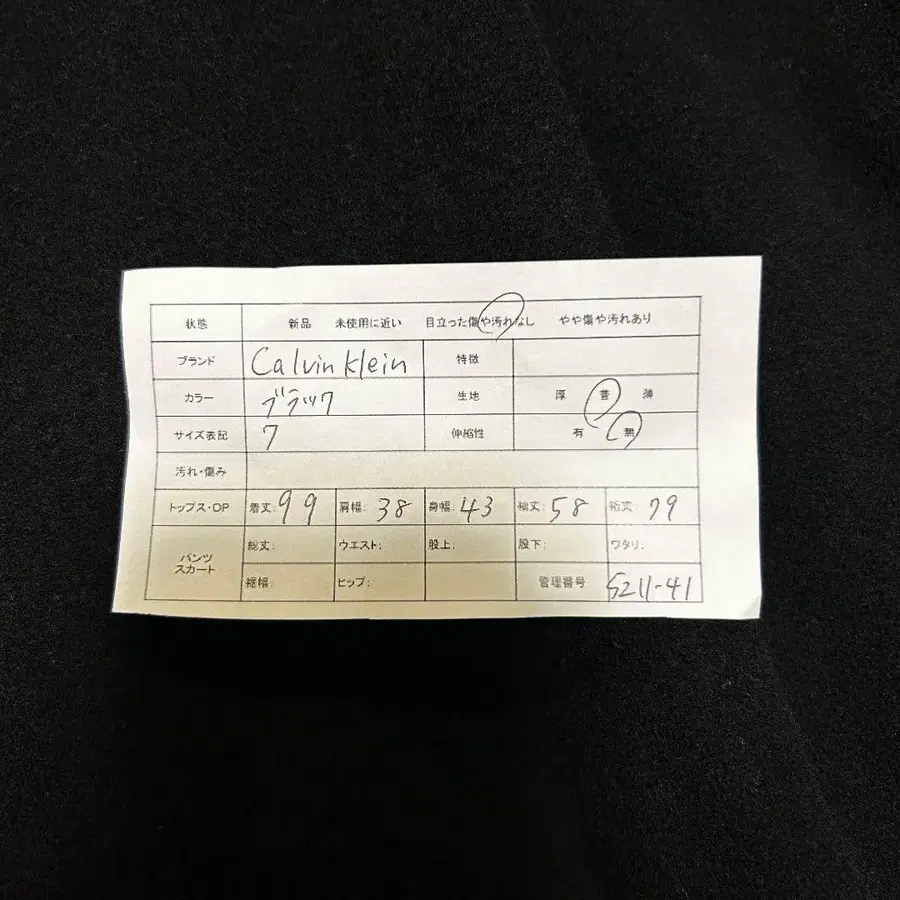 状態 新品 未使用に近い 目立った傷や汚れなし やや傷や汚れあり
ブランド Calvin Klein 特徴
カラー ブラック 生地 厚 普 薄
サイズ表記 7 伸縮性 有 無
汚れ・傷み
トップス・OP 着丈: 99 肩幅: 38 身幅: 43 袖丈: 58 裄丈: 79
パンツ
スカート
総丈: ウエスト: 股上: 股下: ワタリ:
裾幅: ヒップ: 管理番号 5211-41